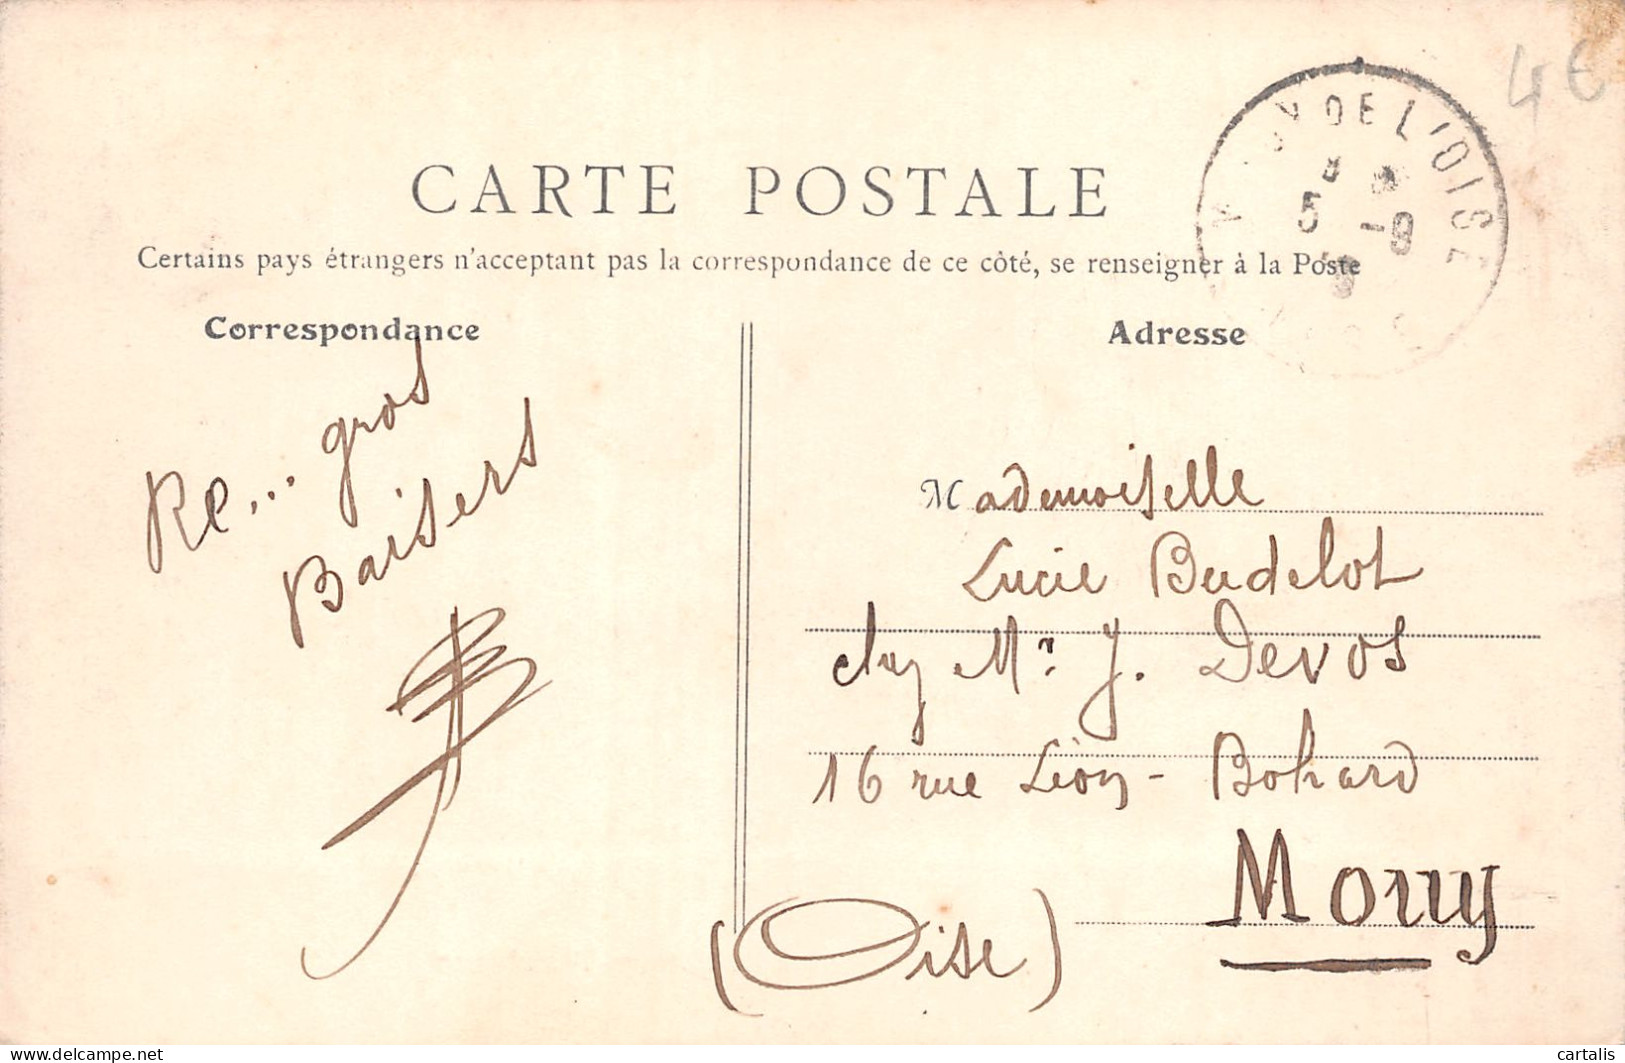 4€
DE L'OISE
5 -9
CARTE POSTALE
Certains pays étrangers n'acceptant pas la correspondance de ce côté, se renseigner à la Poste
Correspondance
Re... gros
Baisers
Adresse
Mademoiselle
Lucie Budelot
chez Mr. J. Devos
16 rue Léon-Bohard
Mouy
(Oise)
www.delcampe.net
cartalis